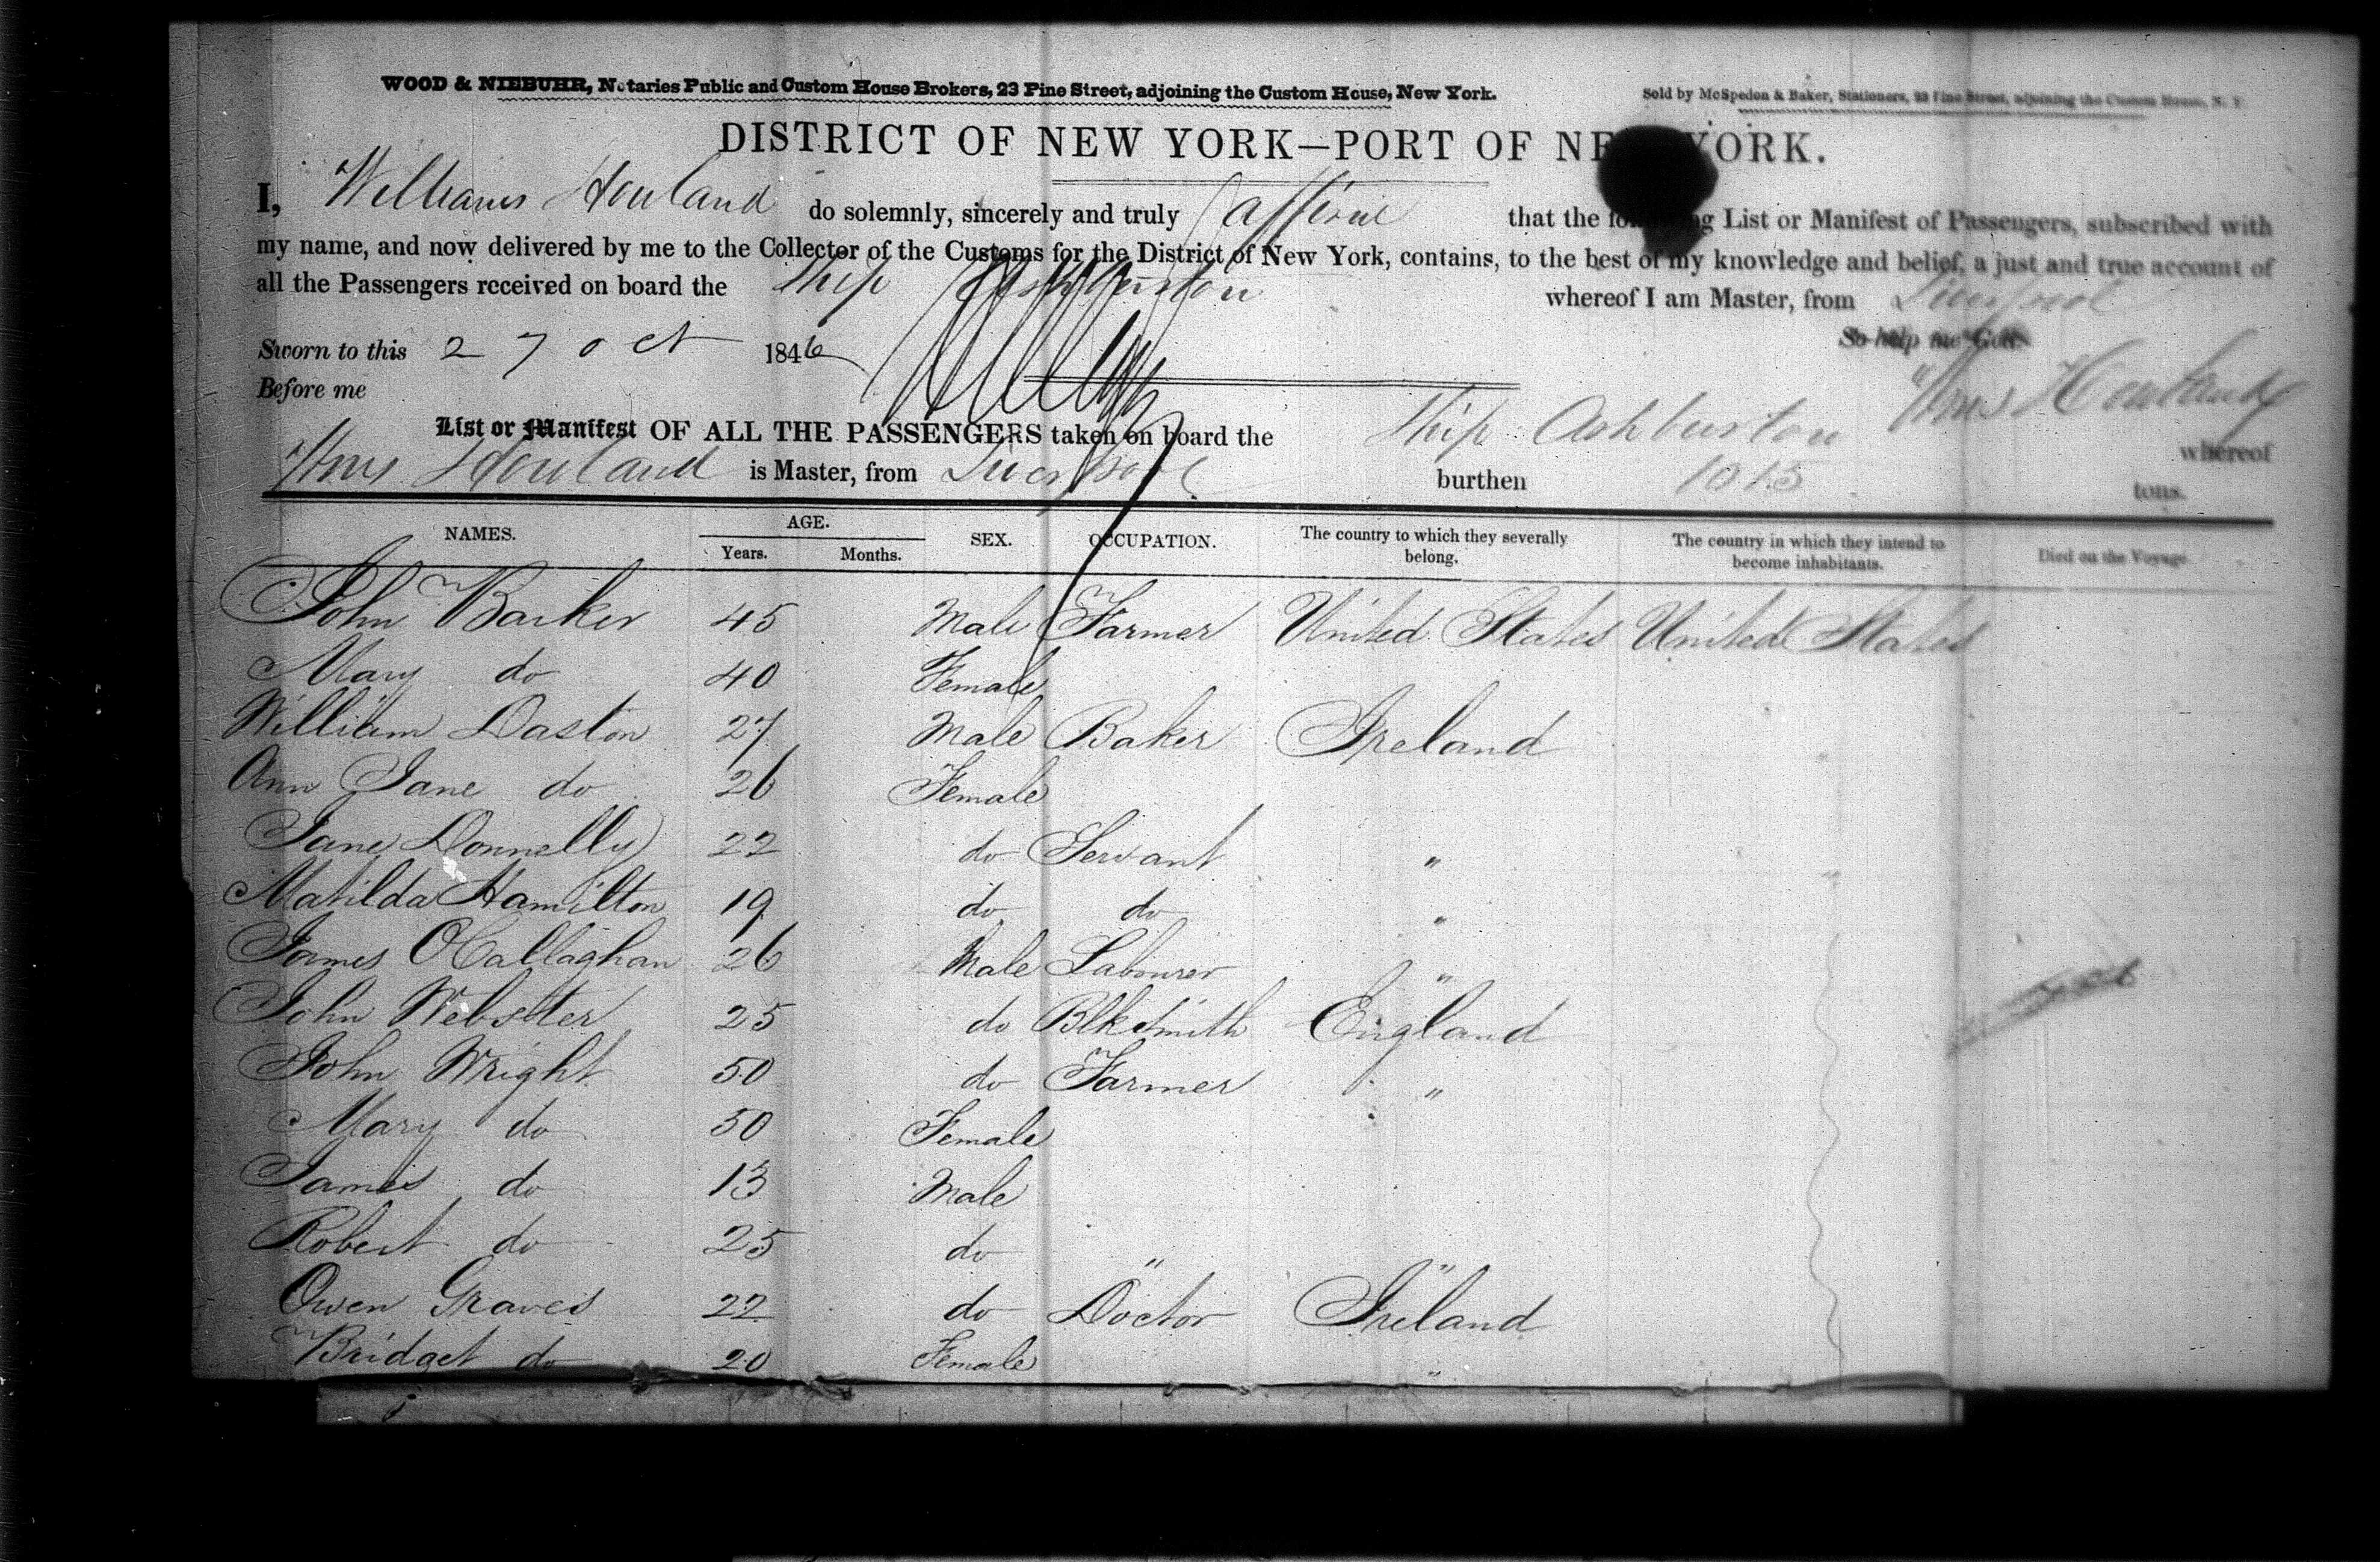 WOOD & NIEBUHR, Notaries Public and Custom House Brokers, 23 Pine Street, adjoining the Custom House, New York.
Sold by McSpedon & Baker, Stationers, 23 Pine Street, adjoining the Custom House, N. Y.
DISTRICT OF NEW YORK—PORT OF NEW YORK.
I, Williams Howland do solemnly, sincerely and truly affirm that the following List or Manifest of Passengers, subscribed with
my name, and now delivered by me to the Collector of the Customs for the District of New York, contains, to the best of my knowledge and belief, a just and true account of
all the Passengers received on board the Ship Ashburton whereof I am Master, from Liverpool
So help me God.
Sworn to this 27 Oct 1846
Before me
Wms Howland
List or Manifest OF ALL THE PASSENGERS taken on board the Ship Ashburton whereof
Wms Howland is Master, from Liverpool burthen 1015 tons.
NAMES. AGE. Years. Months. SEX. OCCUPATION. The country to which they severally belong. The country in which they intend to become inhabitants. Died on the Voyage.
John Barker 45 Male Farmer United States United States
Mary do 40 Female
William Daston 27 Male Baker Ireland
Ann Jane do 26 Female
Jane Donnelly 22 do Servant "
Matilda Hamilton 19 do do "
James OCallaghan 26 Male Labourer "
John Webster 25 do Blksmith England
John Wright 50 do Farmer "
Mary do 50 Female
James do 13 Male
Robert do 25 do " "
Owen Graves 22 do Doctor Ireland
Bridget do 20 Female "